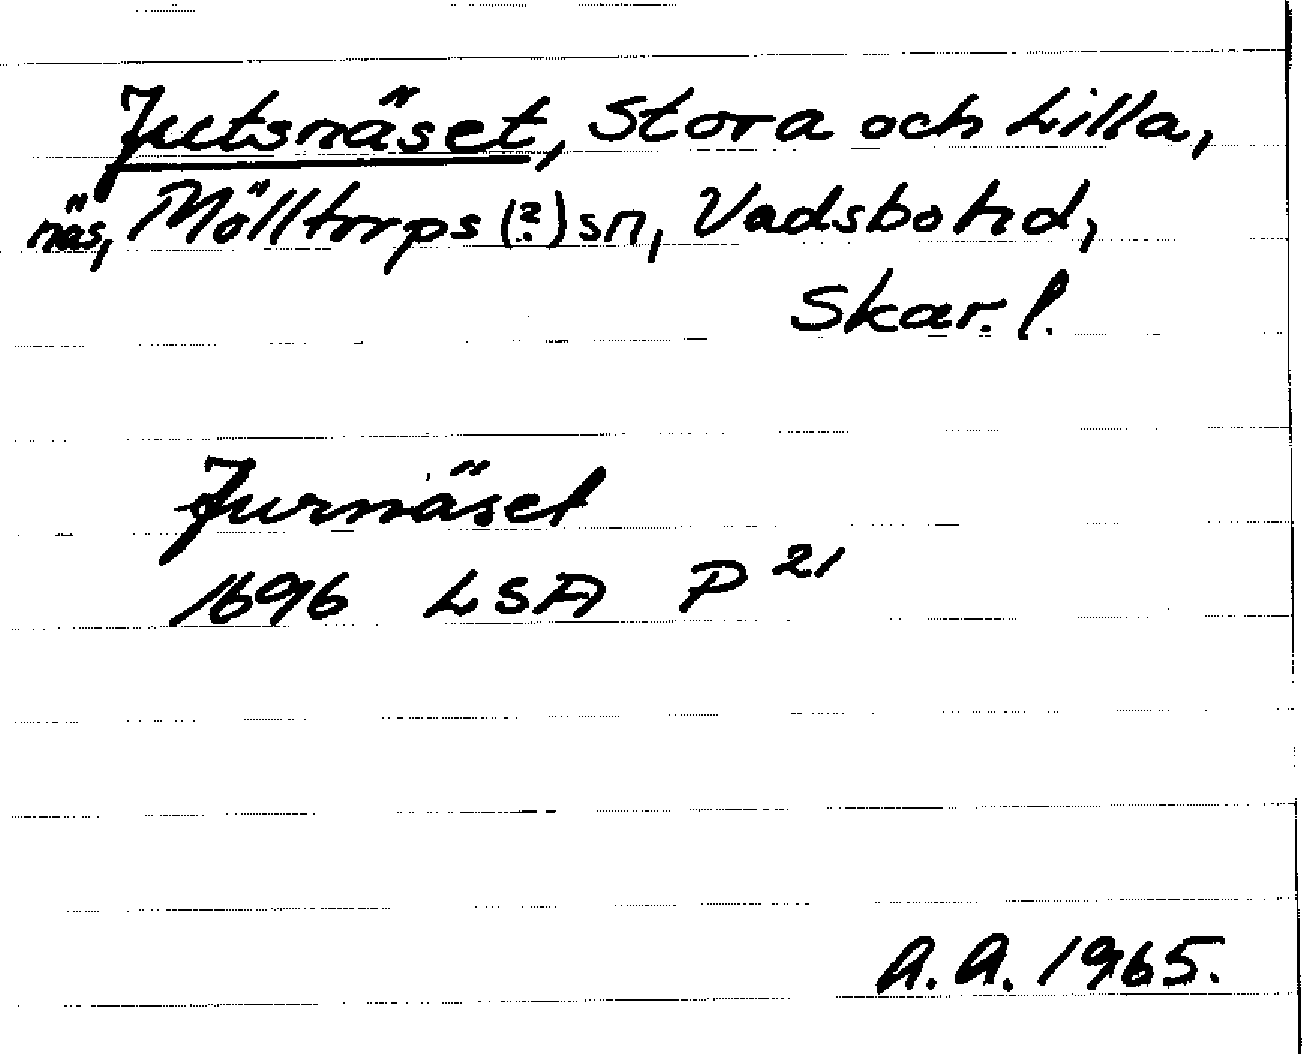 Jutsnäset, Stora och Lilla,
näs, Mölltorps (?) sn, Vadsbo hd,
Skar. l.
Jurnäset
1696 LSA P 21
A.A. 1965.